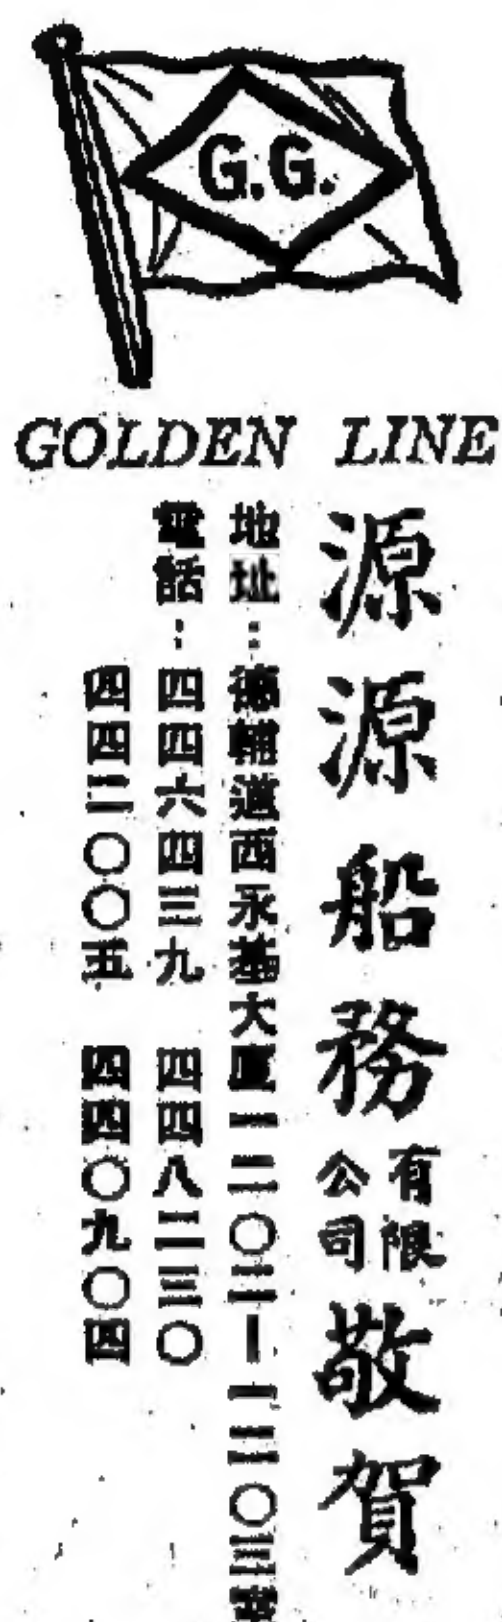 G.G.
GOLDEN LINE
源源船務有限公司敬賀
地址：德輔道西永基大廈一二〇二—一二〇三室
電話：四四六四三九 四四八二三〇
四四二〇〇五 四四〇九〇四